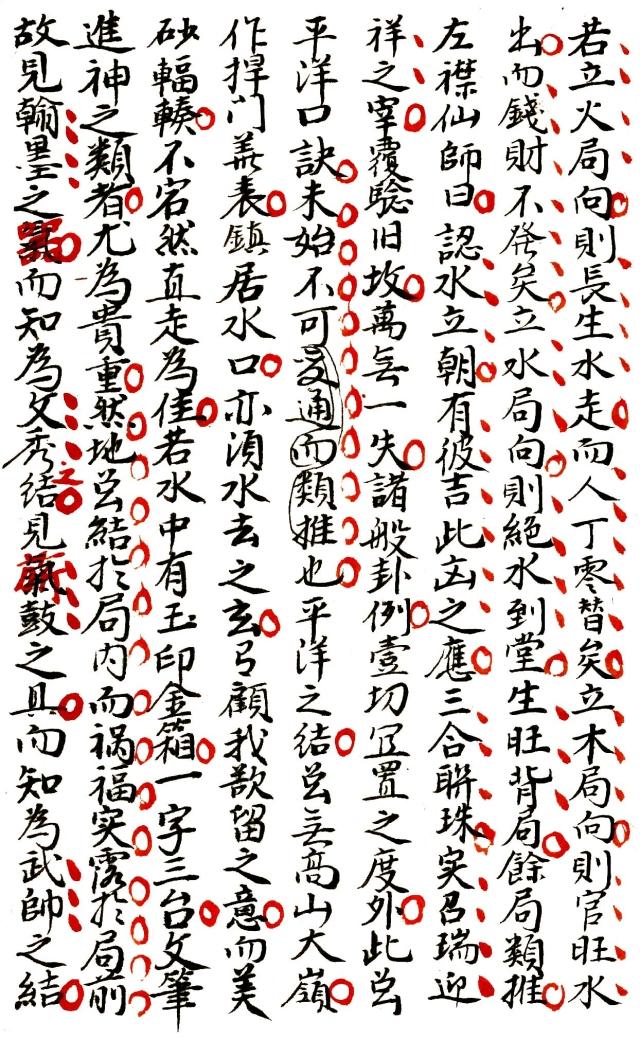 若立火局向則長生水走而人丁零替矣立木局向則官旺水
出而錢財不發矣立水局向則絕水到堂生旺背局餘局類推
左襟仙師曰認水立朝有彼吉此凶之應三合聯珠实召瑞迎
祥之宰覆驗旧坟萬無一失諸般卦例壹切罝置之度外此兰
平洋口訣未始不可变通而類推也平洋之結兰無高山大嶺
作捍門羙表鎮居水口亦須水去之玄弓顧我歆留之意而美
砂輻輳不宕然直走為佳若水中有玉印金箱一字三台文筆
進神之類者尤為貴重然地兰結於局内而禍福实露於局前
故見翰墨之而知為文秀之結見鼓之具而知為武帥之結